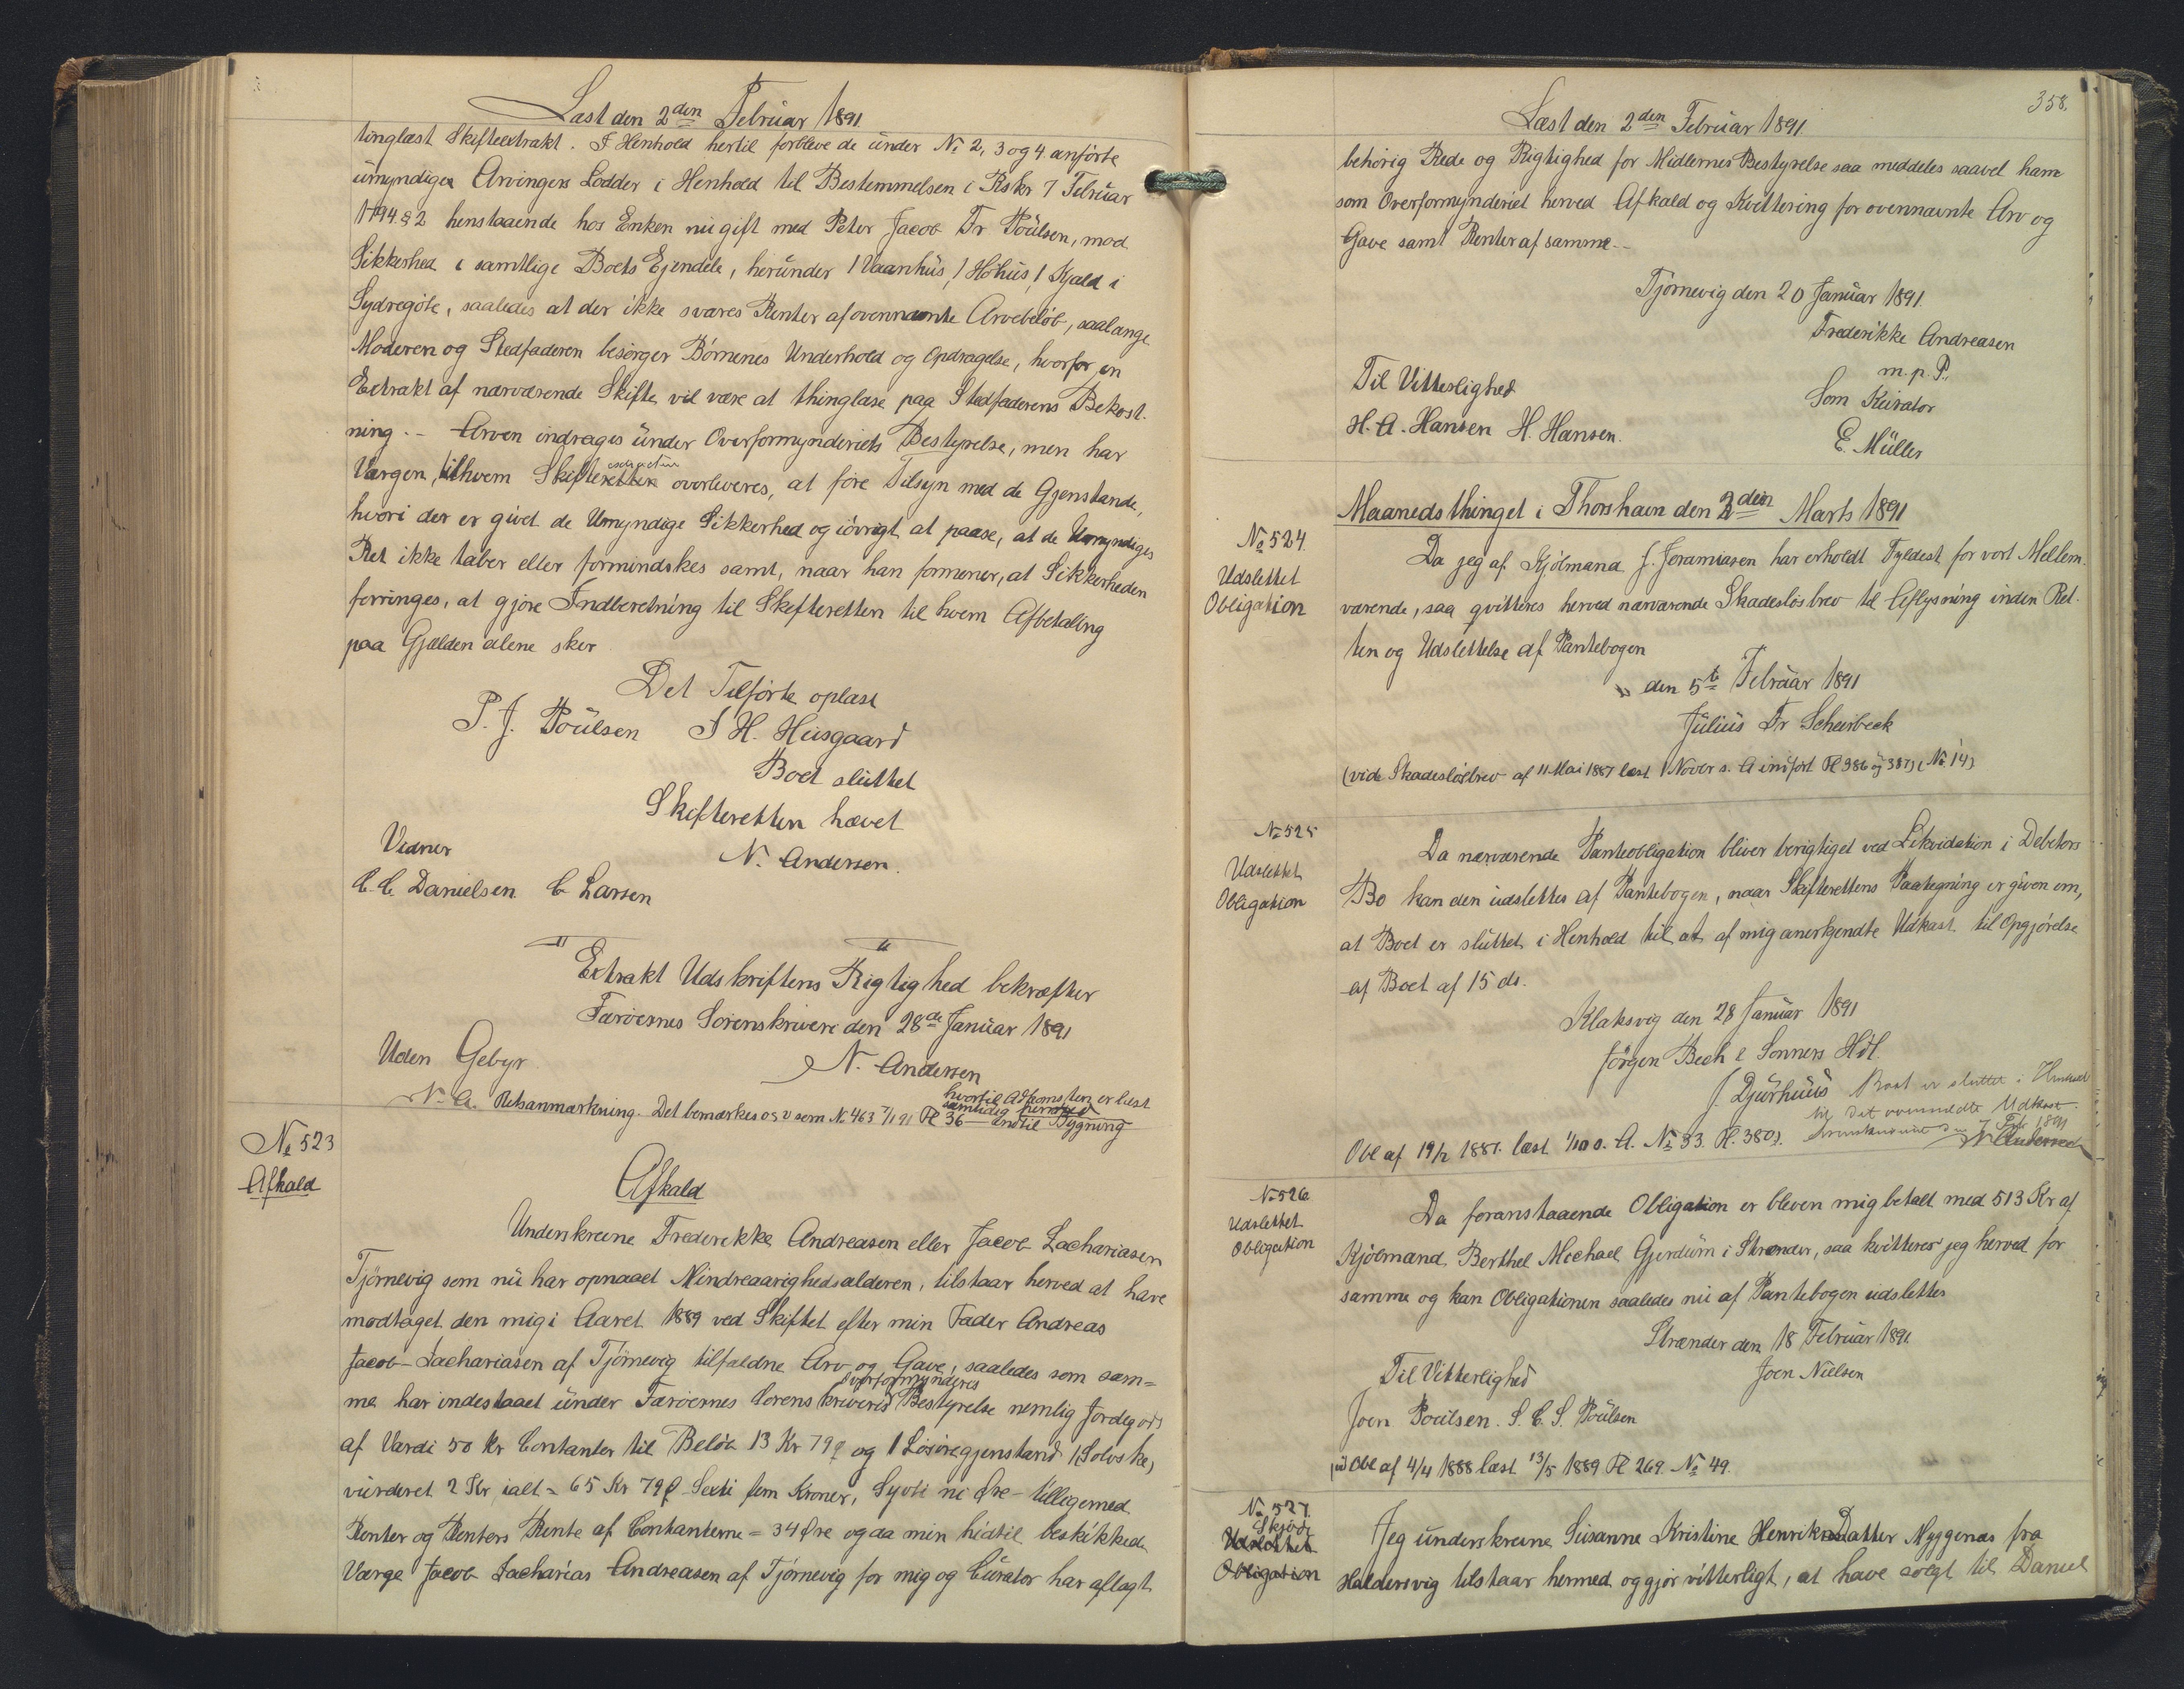 Læst den 2den Februar 1891.
tinglæst Skifteextrakt. I Henhold hertil forbleve de under No 2, 3 og 4 anførte
umyndige Arvingers Lodder i Henhold til Bestemmelsen i Rskr 7 Februar
1794 § 2 henstaaende hos Enken nu gift med Peter Jacob Fr Poulsen, mod
Sikkerhed i samtlige Boets Ejendele, herunder 1 Vaanhus, 1 Høhus, 1 Kjald i
Sydregøte, saaledes at der ikke svares Renter af ovennævnte Arvebeløb, saalænge
Moderen og Stedfaderen besørger Børnenes Underhold og Opdragelse, hvorfor en
Extrakt af nærværende Skifte vil være at thinglæse paa Stedfaderens Bekost-
ning. - Arven inddrages under Overformynderiets Bestyrelse, men har
Værgen, til hvem Skifteretten overleveres, at føre Tilsyn med de Gjenstande,
hvori der er givet de Umyndige Sikkerhed og iøvrigt at paase, at de Umyndiges
Ret ikke taber eller formindskes samt, naar han formener, at Sikkerheden
forringes, at gjøre Indberetning til Skifteretten til hvem Afbetaling
paa Gjælden alene sker
Det Tilførte oplæst
P. J. Poulsen J H. Husgaard
Boet sluttet
Skifteretten hævet
N. Andersen.
Vidner
C. C. Danielsen. C Larsen
Extrakt Udskriftens Rigtighed bekræfter
Færøernes Sorenskriveri den 28de Januar 1891
Uden Gebyr N. Andersen
N. A. Retsanmærkning. Det bemærkes osv som No 463 7/1 91 Fl 36 - indtil Bygning
hvortil Adkomsten er læst
samtidig herved
No 523
Afkald
Afkald
Underskrevne Frederikke Andreasen eller Jacob Zachariasen
Tjørnevig som nu har opnaaet Mindreaarighedsalderen, tilstaar herved at have
modtaget den mig i Aaret 1889 ved Skiftet efter min Fader Andreas
Jacob Zachariasen af Tjørnevig tilfaldne Arv og Gave, saaledes som sam=
overformynderis
me har indestaaet under Færøernes Sorenskriveris Bestyrelse nemlig Jordegods
af Værdi 50 Kr Contanter til Beløb 13 Kr 79 ø og 1 Løsøregjenstand (Sølvske)
vurderet 2 Kr, ialt = 65 Kr 79 ø Sexti fem Kroner, Syvti ni Øre - tilligemed
Renter og Renters Rente af Contanterne = 34 Øre og da min hidtil beskikkede
Værge Jacob Zacharias Andreasen af Tjørnevig for mig og Curator har aflagt
358.
Læst den 2den Februar 1891
behørig Rede og Rigtighed for Midlernes Bestyrelse saa meddeles saavel ham
som Overformynderiet herved Afkald og Kvittering for ovennævnte Arv og
Gave samt Renter af samme. -
Tjørnevig den 20 Januar 1891.
Frederikke Andreasen
m. p. P.
Til Vitterlighed Som Kurator
H. A. Hansen H. Hansen. E. Müller
Maanedsthinget i Thorshavn den 2den Marts 1891
No 524.
Udslettet
Obligation
Da jeg af Kjølmand J. Joramiasen har erholdt Fyldest for vort Mellem-
værende, saa qvitteres herved nærværende Skadesløsbrev til Aflysning inden Ret-
ten og Udslettelse af Pantebogen
den 5te Februar 1891
Julius Fr Scheirbeck
(vide Skadesløsbrev af 11 Mai 1887 læst 1 Novbr s. A indført Fl 386 og 387) (No 14)
No 525
Udslettet
Obligation
Da nærværende Panteobligation bliver berigtiget ved Likvidation i Debitors
Bo kan den udslettes af Pantebogen, naar Skifterettens Paategning er given om,
at Boet er sluttet i Henhold til at af mig anerkjendte Udkast til Opgjørelse
af Boet af 15 ds.
Klaksvig den 28 Januar 1891
Jørgen Bech & Sønners Hdl.
J. Djurhuus Boet er sluttet i Henhold
til det ovenmeldte Udkast.
den 7 Febr 1891
N Andersen
Obl af 19/2 1887. læst 1/10 s. A. No 33. Fl. 380).
No 526
Udslettet
Obligation
Da foranstaaende Obligation er bleven mig betalt med 513 Kr af
Kjølmand Berthel Michael Gjerdum i Strænder, saa kvitterer jeg herved for
samme og kan Obligationen saaledes nu af Pantebogen udslettes
Strænder den 18 Februar 1891
Til Vitterlighed Joen Nielsen
Joen Poulsen. S. C. S. Poulsen
vid Obl af 4/4 1888 læst 13/5 1889 Fl 269. No 49.
No 527.
Skjøde
Udslettet
Obligation
Jeg underskrevne Susanne Kristine Henriksdatter Myggenæs fra
Haldersvig tilstaar hermed og gjør vitterligt, at have solgt til Daniel